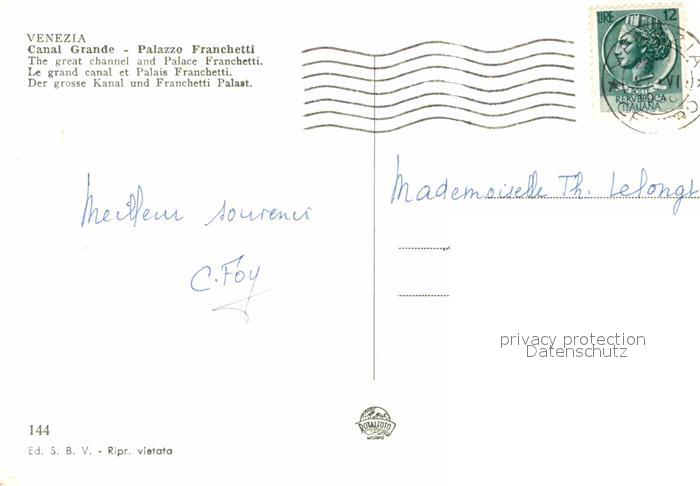 VENEZIA
Canal Grande - Palazzo Franchetti
The great channel and Palace Franchetti.
Le grand canal et Palais Franchetti.
Der grosse Kanal und Franchetti Palast.
LIRE 12
POSTE
REPVBBLICA
ITALIANA
Mademoiselle Th. Lelongt
Meilleur souvenir
C. Foy
privacy protection
Datenschutz
144
ROTALFOTO
MILANO
Ed. S. B. V. - Ripr. vietata